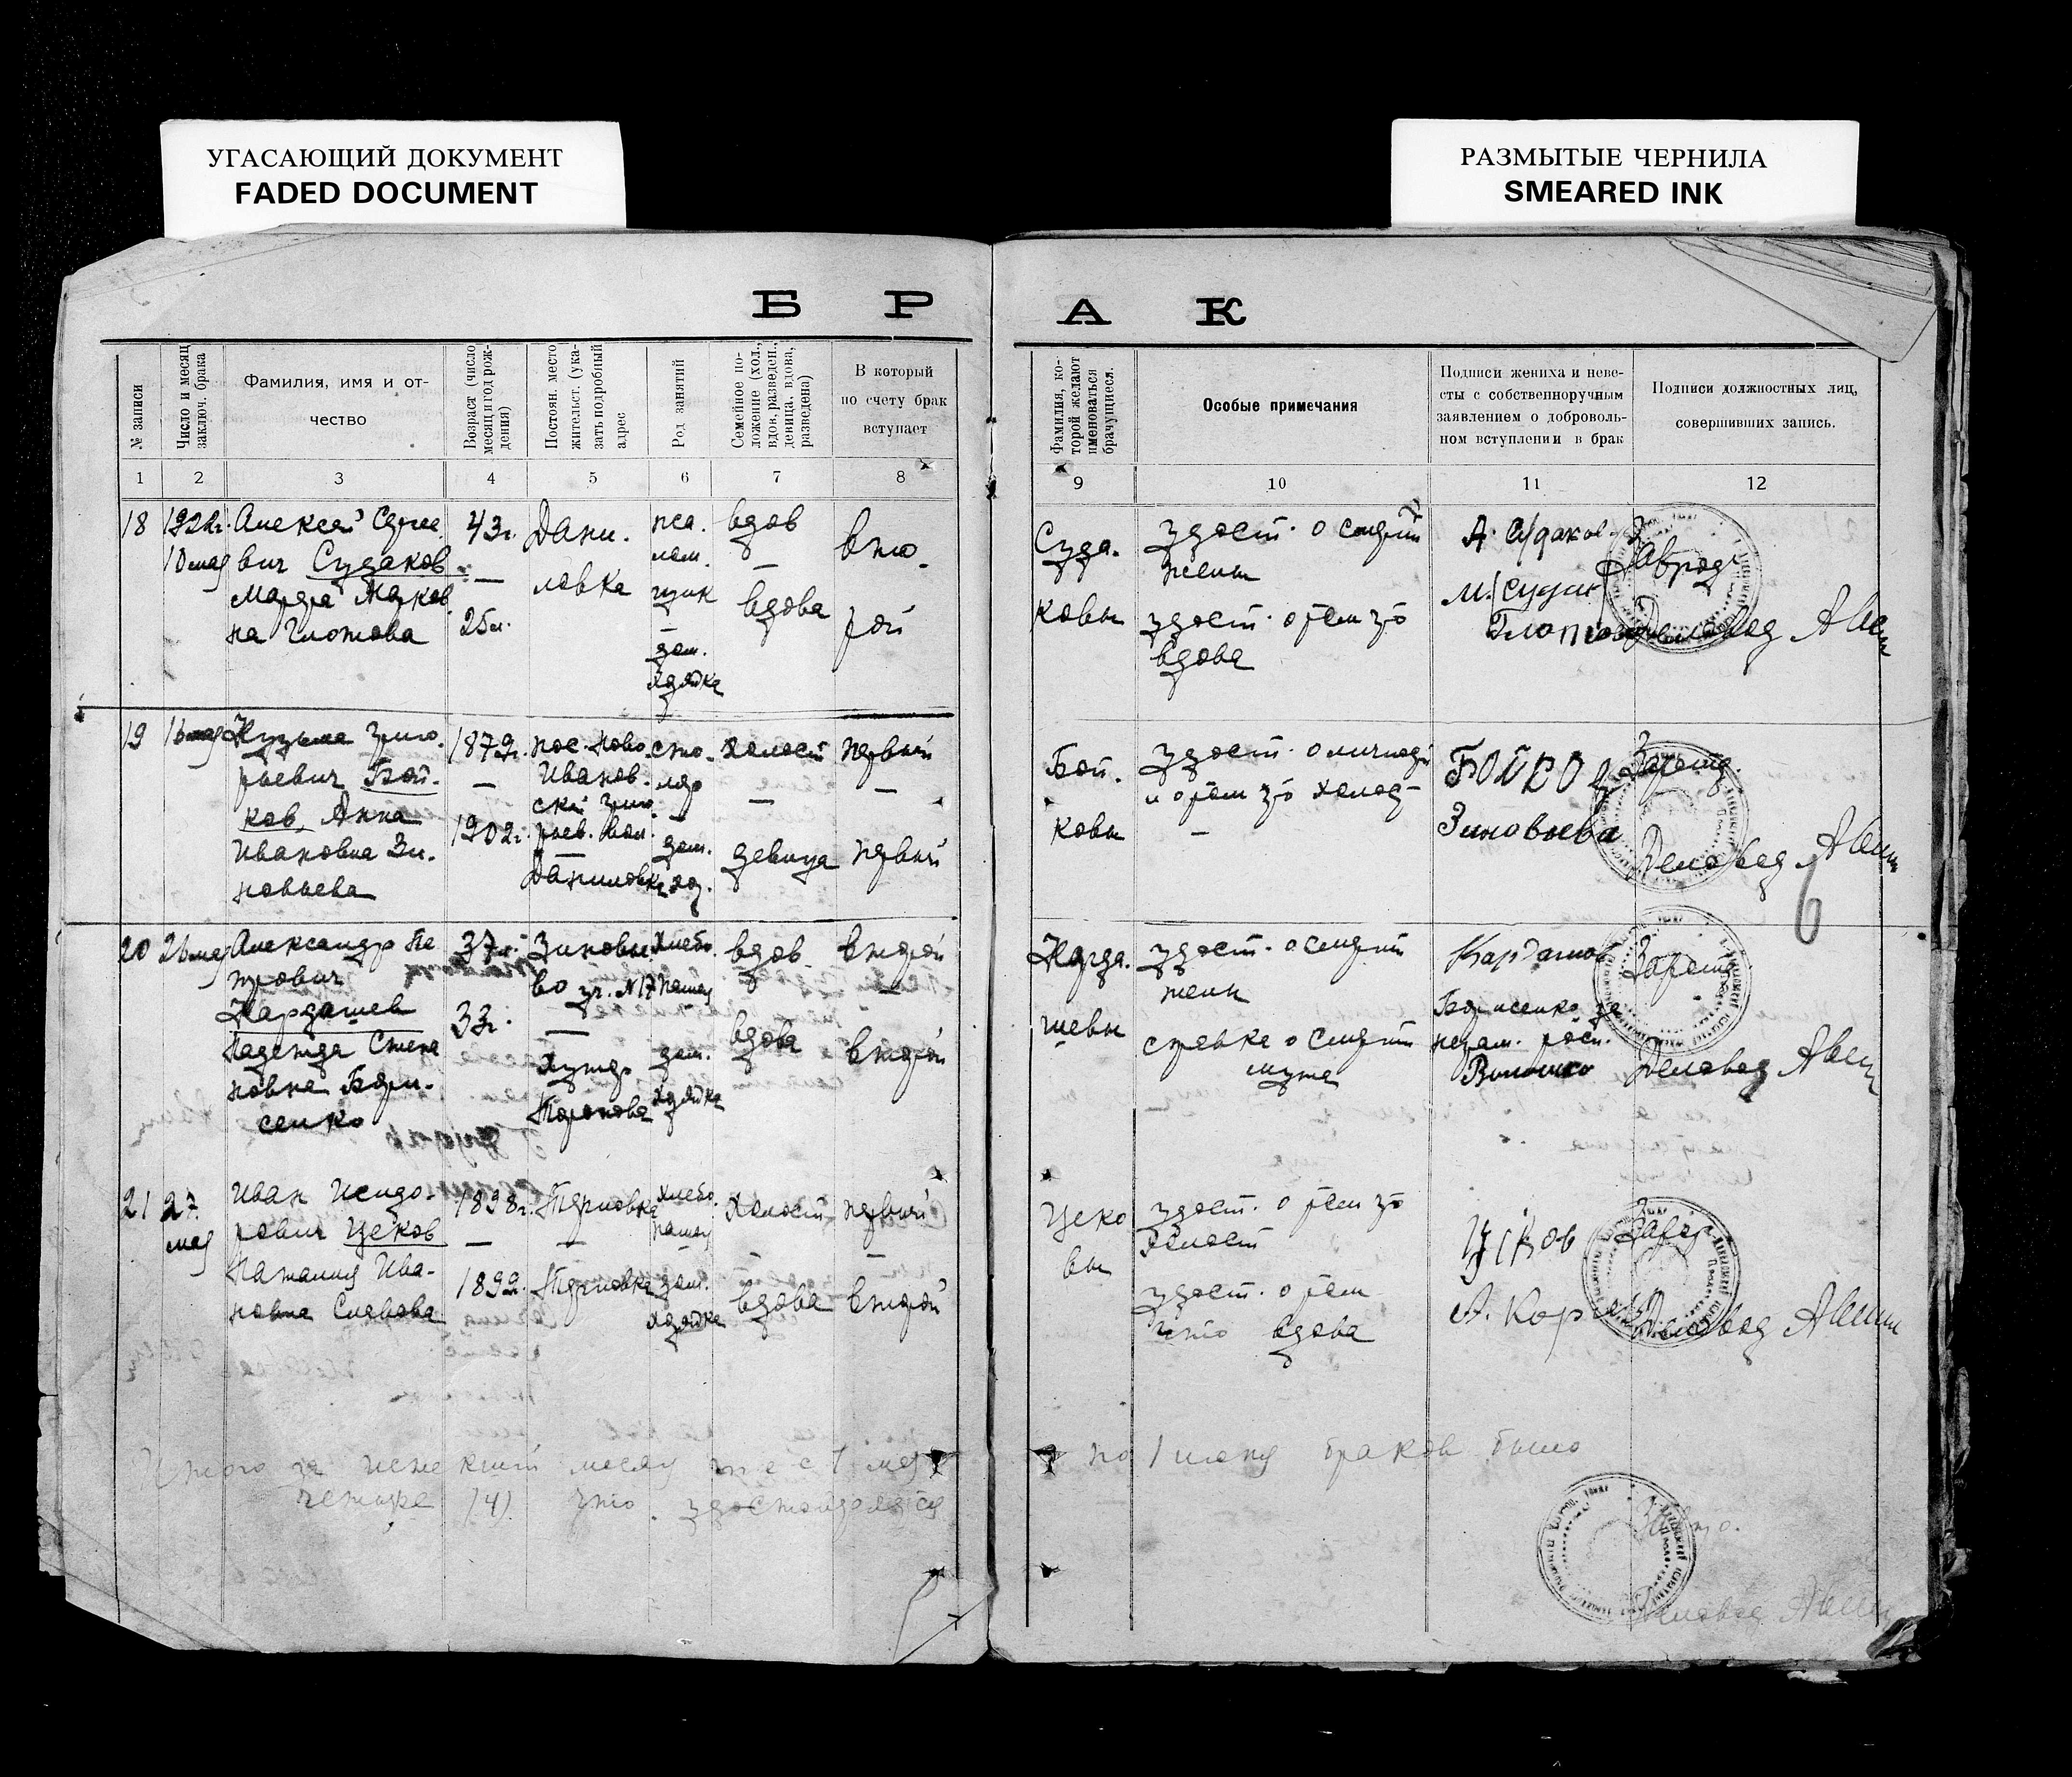 УГАСАЮЩИЙ ДОКУМЕНТ
FADED DOCUMENT
РАЗМЫТЫЕ ЧЕРНИЛА
SMEARED INK
Б Р А К
№ записи
Число и месяц
заключ. брака
Фамилия, имя и от-
чество
Возраст (число
месяц и год рож-
дения)
Постоян. место
жительст. (ука-
зать подробный
адрес
Род занятий
Семейное по-
ложение (хол.,
вдов, разведен.,
девица, вдова,
разведена)
В который
по счету брак
вступает
Фамилия, ко-
торой желают
именоваться
брачущиеся.
Особые примечания
Подписи жениха и неве-
сты с собственноручным
заявлением о доброволь-
ном вступлении в брак
Подписи должностных лиц,
совершивших запись.
1 2 3 4 5 6 7 8 9 10 11 12
18
1922г.
10 мая
Алексей Серге
вич Судаков
Марфа Марков
на Глотова
43г.
—
25л.
Дани.
ловка
пса.
лом.
щик
—
дом.
хозяйка
вдов
—
вдова
вто
рой
Суда.
ковы
удост. о смерти
жены
удост. о том что
вдова
А. Судаков
Деловод
19
16 мая
Кузьма Григо.
рьевич Бой.
ков, Анна
Ивановна Зи.
новьева
1879г.
—
1902г.
пос. Ново
Иванов.
ский Григо
рьев. вол.
—
Даниловка
сто.
ляр
—
дом.
хоз.
холост
—
девица
первый
—
первый
Бой.
ковы
удост. о личнос
и о том что холос
—
БОЙКО
Зиновьева
Деловод
6
20
26 мая
Александр Пе
трович
Кардашев
Надежда Степа
новна Бори.
сенко
37л.
33г.
Зиновье
во уч. №17
—
Хутор
хлебо
пашец
дом.
хозяйка
вдов.
вдова
второй
—
второй
Карда.
шевы
удост. о смерти
жены
справка о смерти
мужа
Кардашов
Борисенко за
неграм. росп.
Деловод
21
27.
мая
Иван Исидо.
рович Цеков
Наталия Ива-
новна Славова
1898г.
—
1899г.
Терновка
—
Терновка
хлебо.
пашец
—
дом.
хозяйка
холост
—
вдова
первый
—
второй
Цеко
вы
удост. о том что
холост
удост. о том
что вдова
Деловод
Итого за истекший месяц т.е с 1 мая по 1 июня браков было
четыре (4) что удостоверяется
Деловод